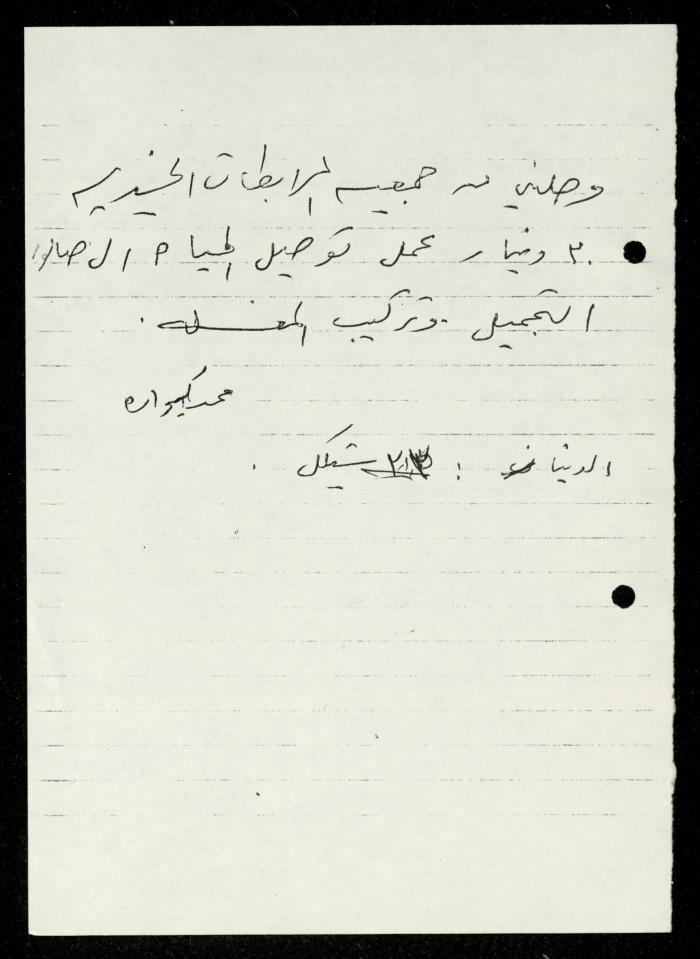 وصلني من جمعيه المرابطات الخيريه
٢٠ دينار عمل توصيل المياه الى صالون
التجميل وتركيب المغسله .
محمد
الدينار : شيكل .